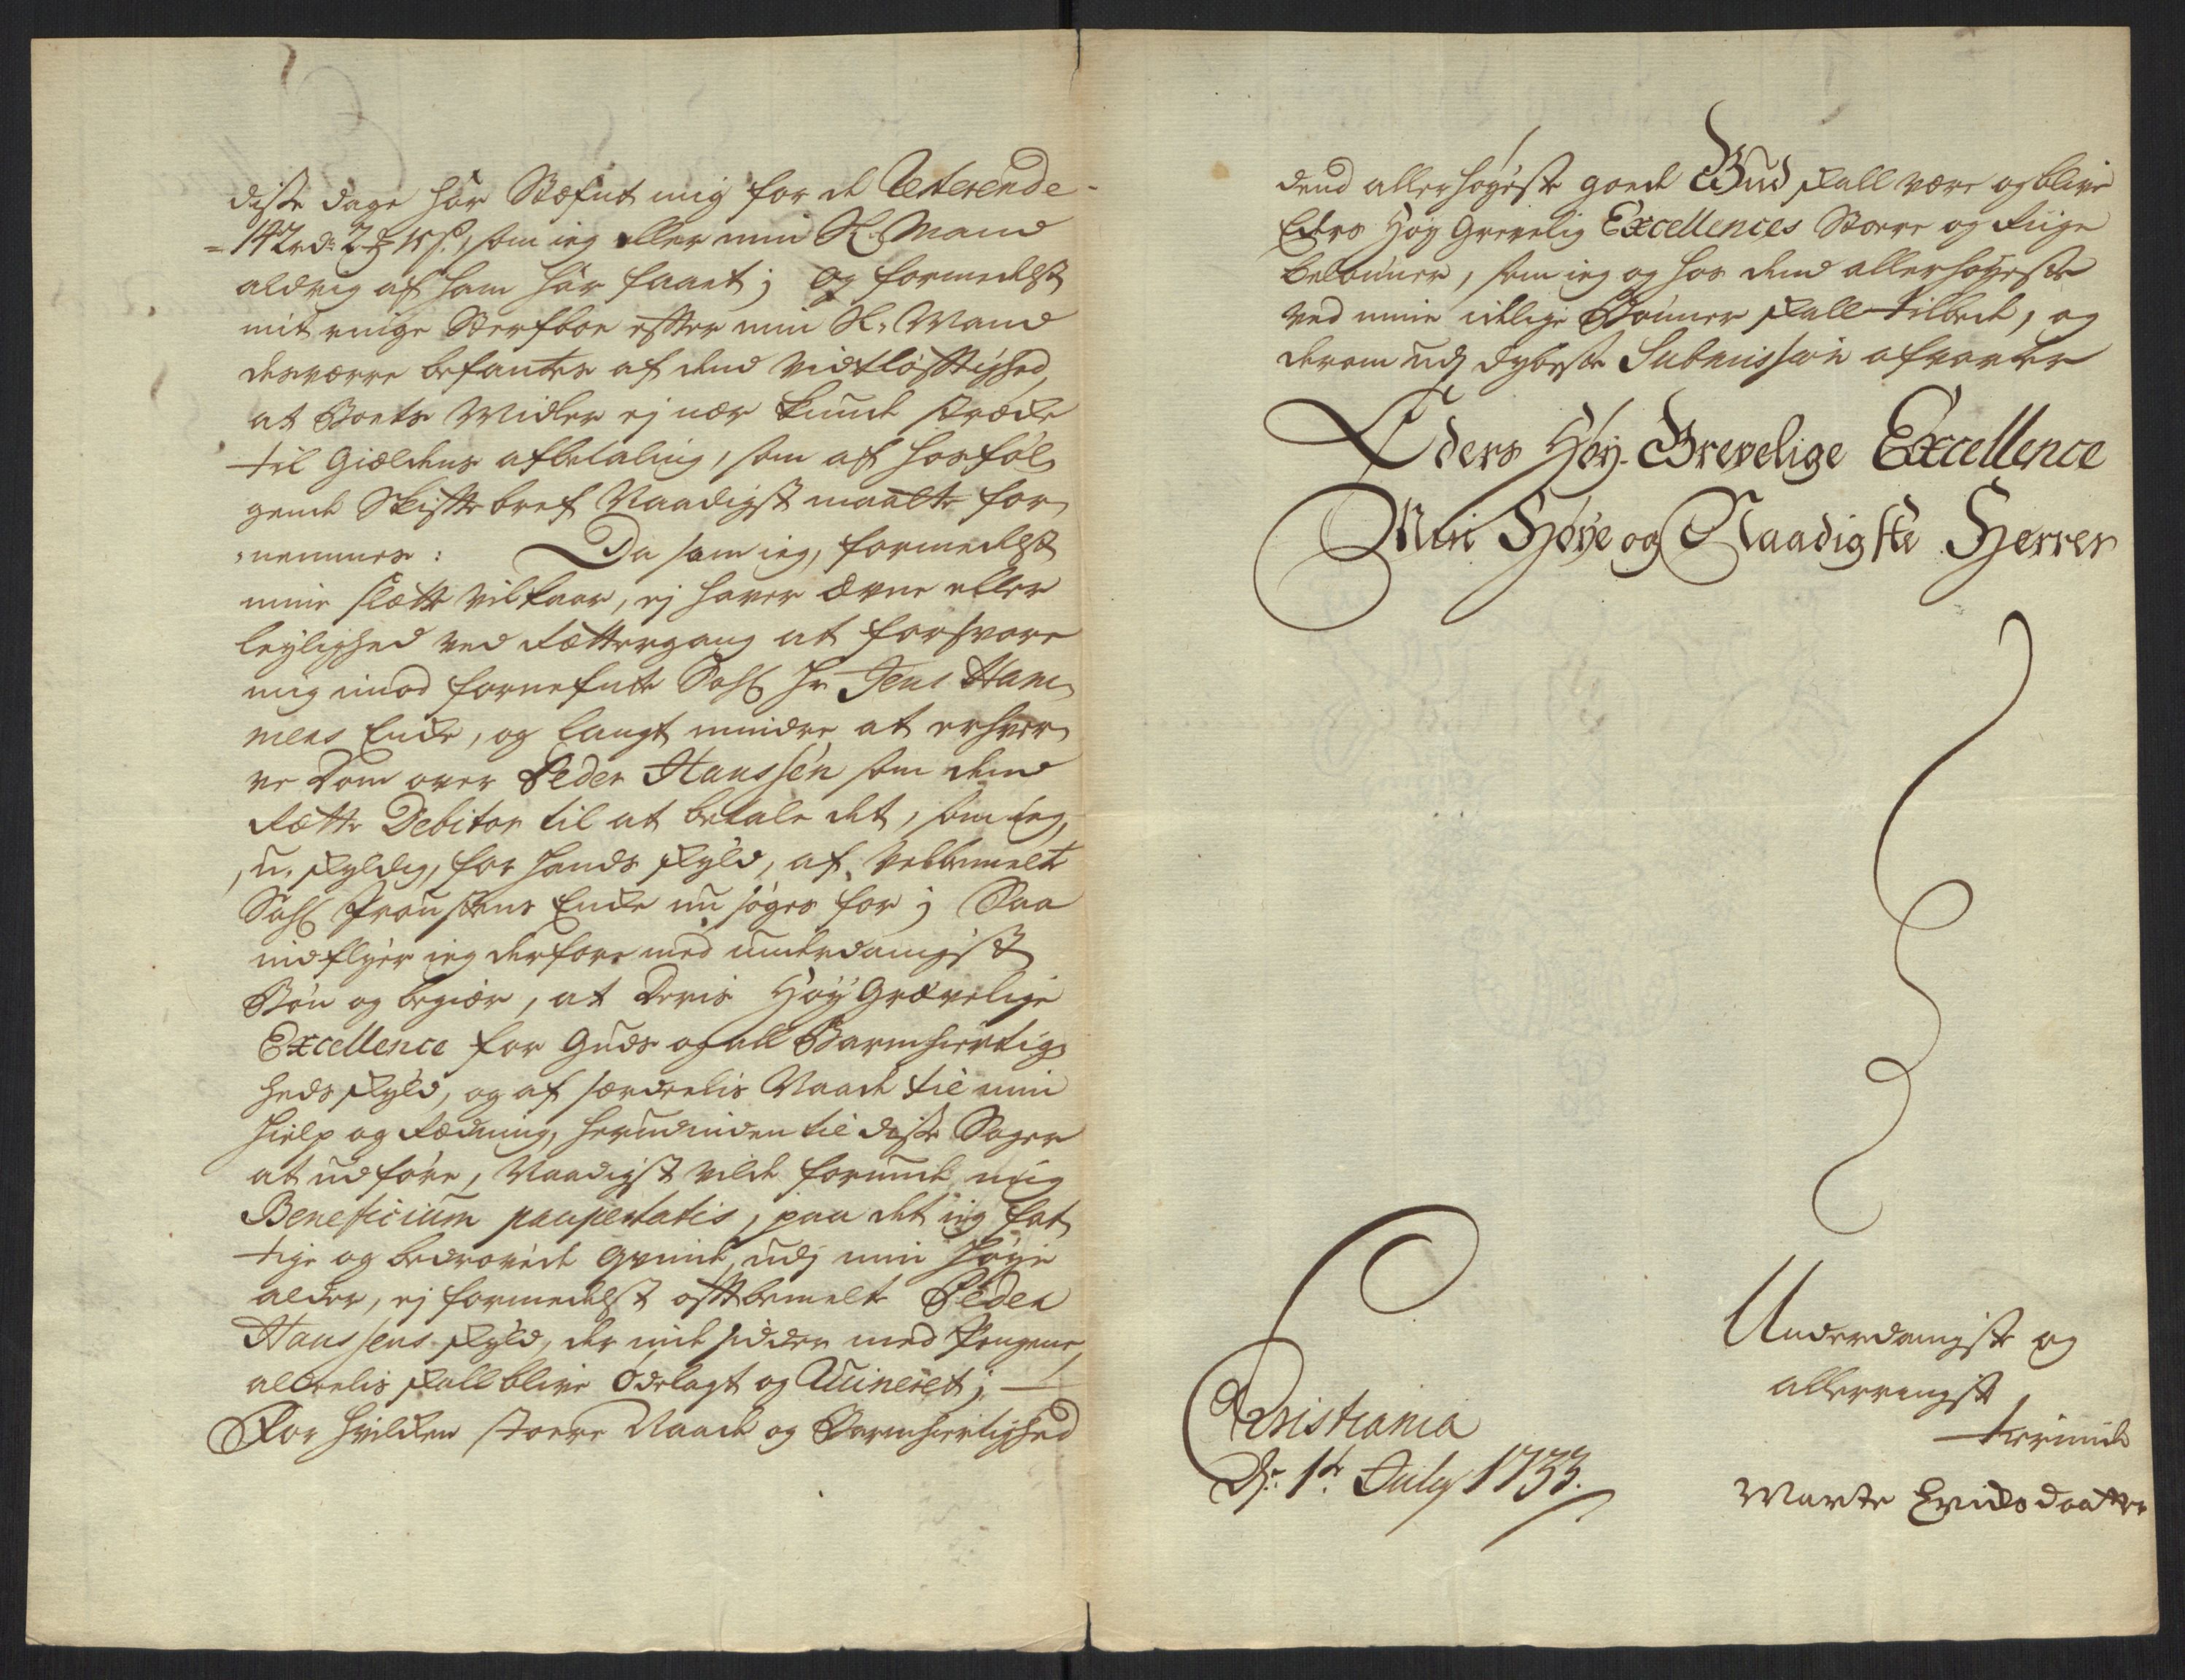 diste dage har Stefnt mig for de Resterende
= 142 rd: 2 ₰ 15 s., som ieg eller min Sl. Mand
aldrig af ham har faaet; og formedelst
mit ringe Sterfboe effter min Sl. Mand
desverre befantes af dend Vidtløfftighed,
at Boets Midler ej nær kunde strecke
til Giældens afbetaling, som af hosføl-
gende Skifftebref Naadigst maatte for-
nemmes: Da som ieg, formedelst
mine slætte Vilkaar, ej haver Ævne eller
leylighed ved Rættergang at forsvare
mig imod fornefnte Sahl Hr Jens Ham-
mens Encke, og langt mindre at erhver-
ve Dom over Peder Hanssen som dend
Rætte Debitor til at betale det, som ieg,
u-skyldig, for hands skyld, af velbemelte
Sahl Proustens Encke nu søges for; Saa
indflyer ieg derfore med underdanigst
Bøn og begiær, at Deris Høy Grævelige
Excellence for Guds og all Barmhiertig-
heds skyld, og af særdeelis Naade til min
hielp og Rædning, herudinden til diste Sager
at udføre, Naadigst vilde forunde mig
Beneficium paupertatis, paa det ieg fat-
tige og bedrøvede Qvinde, udj min høye
alder, ej formedelst offtbemelte Peder
Hanssens skyld, der inde sidder med Pengene,
aldeelis skall blive Ødelagt og Ruineret;
For hvilcken stoere Naade og Barmhiertighed
dend allerhøyeste goede Gud skall være og blive
Eders Høy Grevelig Excellences Stoere og Riige
belønner, som ieg og hos dend allerhøyeste
ved mine idelige Bønner skall tilbede, og
derom udj dybeste Submission afvarter
Eders Høy-Grevelige Excellence
Min Høye og Naadigste Herres
Christiania
D: 1te July 1733.
Underdanigste og
allerringeste
tienerinde
Marte Ericksdaatter